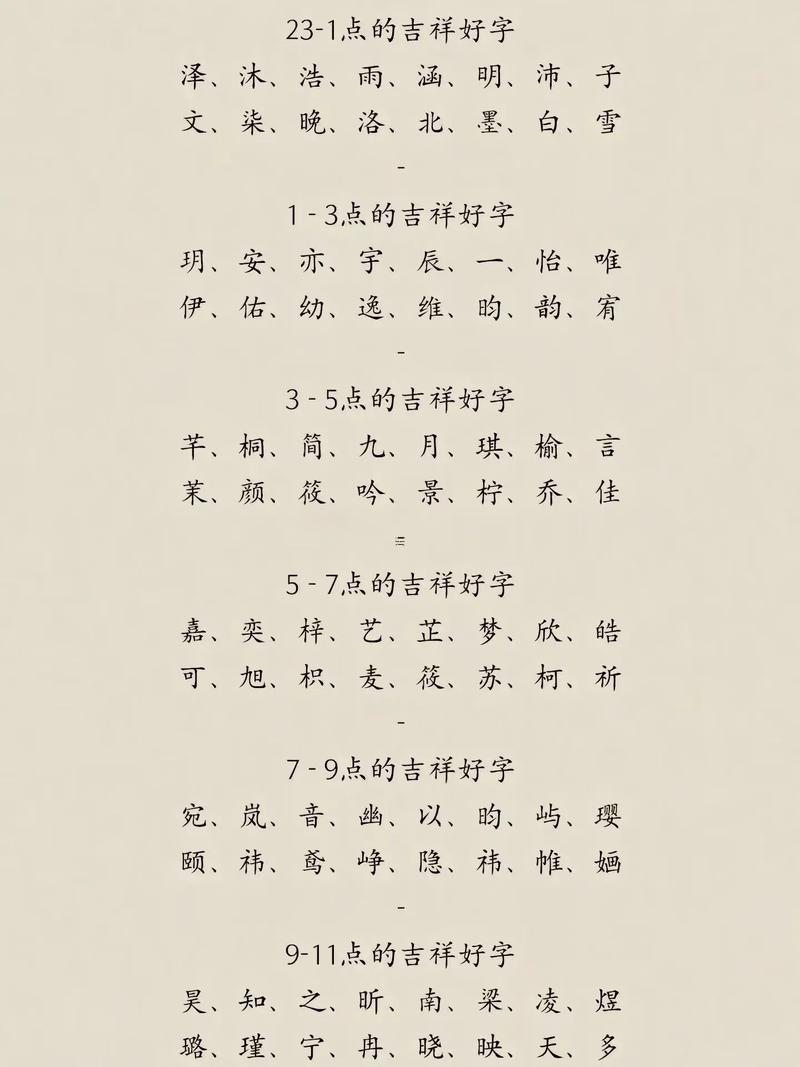 23-1点的吉祥好字
泽、沐、浩、雨、涵、明、沛、子
文、柒、晚、洛、北、墨、白、雪
-
1-3点的吉祥好字
玥、安、亦、宇、辰、一、怡、唯
伊、佑、幼、逸、维、昀、韵、宥
-
3-5点的吉祥好字
芊、桐、简、九、月、琪、榆、言
茉、颜、筱、吟、景、柠、乔、佳
5-7点的吉祥好字
嘉、奕、梓、艺、芷、梦、欣、皓
可、旭、枳、麦、筱、苏、柯、祈
-
7-9点的吉祥好字
宛、岚、音、幽、以、昀、屿、璎
颐、祎、鸢、峥、隐、祎、帷、婳
-
9-11点的吉祥好字
昊、知、之、昕、南、梁、凌、煜
璐、瑾、宁、冉、晓、映、天、多